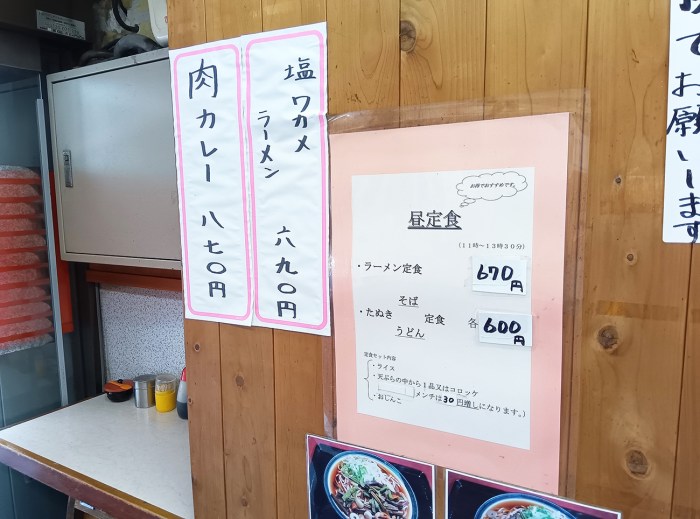 肉カレー 八七〇円
塩ワカメ
ラーメン
六九〇円
お得でおすすめです。
昼定食
(11時~13時30分)
・ラーメン定食 670円
そば
・たぬき 定食 各 600円
うどん
定食セット内容
・ライス
・天ぷらの中から1品又はコロッケ
メンチは30円増しになります。)
・おしんこ
でお願いします